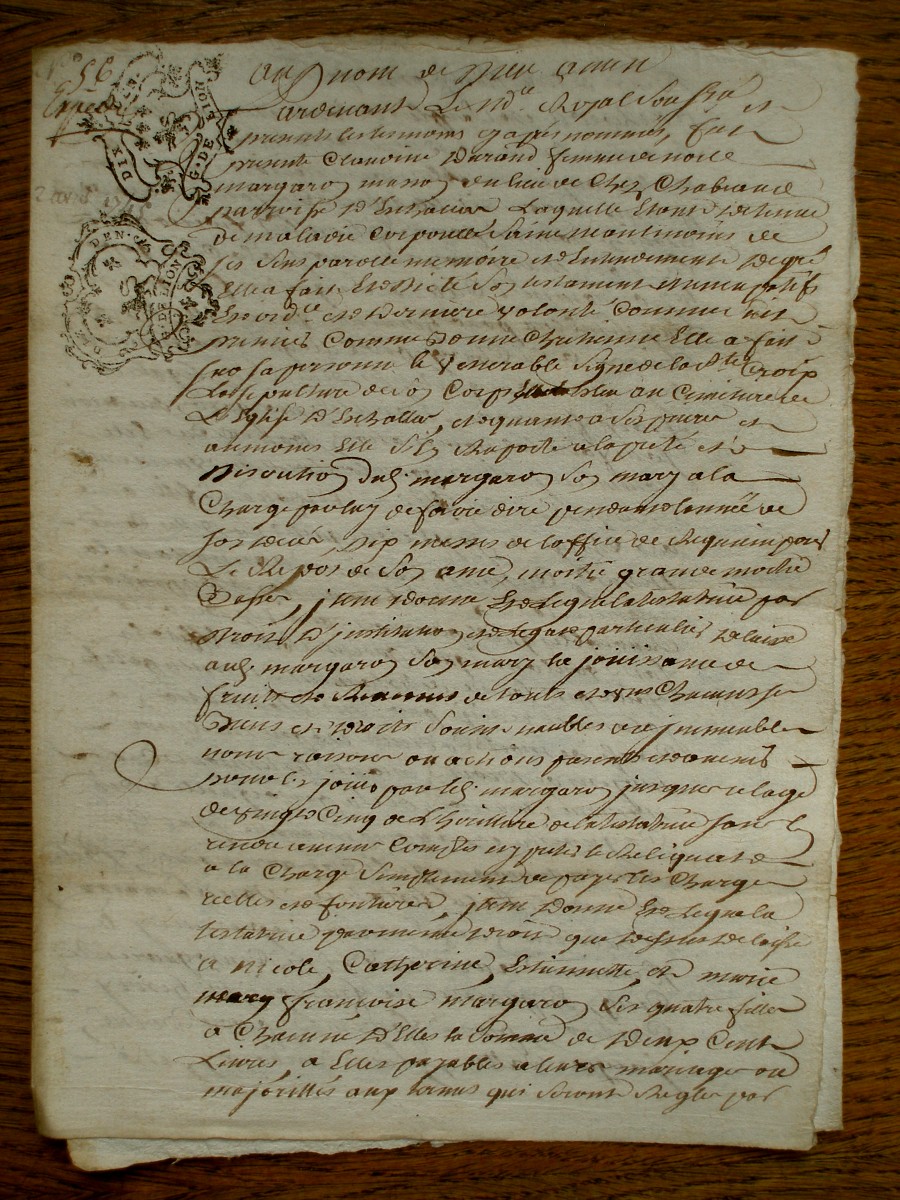 N° 56
DIX DEN.
G. DE LION
DEN.
G. DE LION
au nom de Dieu amen
Pardevant Le nd.re Royal Soussé et
présents les temoins cy apès nommés, fut
presente Claudine Durand femme de noele
margaron masson du lieu de Chez Chabraud
parroisse D'Eschallier Laquelle Etant detenue
de maladie Corporelle Saine neantmoins de
ses Sens parolle mémoire et Entendement Degré
Elle a fait Et dicté Son testament nuncupatif
Et ord.re et Derniere Volonté Comme
premier Comme Bonne Chretienne Elle a fait
sur sa personne le Venerable Signe de la S.te Croix
La Sepulture de Son Corps Eslüe au Cimetiere de
L'Eglise D'Eschallier, et quant a Ses prieres et
aumones Elle S'En Raporte a la pieté et
Discretion dud. margaron Son mary a la
Charge par luy de faire dire pendant l'année de
son décés, dix messes de l'office de Requiem pour
Le Repos de Son ame, moitié grandes moitié
Basses, Item donne Et Legue la testatrice par
Droit D'institution et Legat particulier Delaisse
aud. margaron Son mary la jouissance de
fruits et Revenus de touts et uns Chacuns Ses
Biens et Droits Soient meubles et immeubles
noms raisons ou actions presents et avenirs
pour les jouir par led. margaron jusques a l'age
de vingt Cinq de L'heritiere de la testatrice sans en
rendre aucun Compte ny preter le Reliquat
a la Charge Simplement de payer les Charges
réelles et foncieres, Item Donne Et Legue la
testatrice par même droit que Dessus Delaisse
a nicole, Catherine, Estiennette, et marie
françoise margaron Ses quatre filles
a Chacune D'Elles la Somme de Deux Cent
Livres, a Elles payables a leurs mariages ou
majorités aux termes qui Seront Reglés par